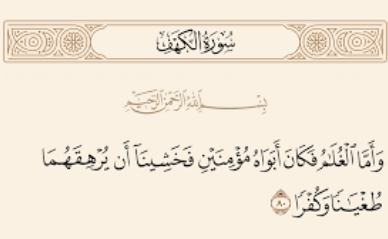 سُورَةُ الكَهْفِ
بِسْمِ اللَّهِ الرَّحْمَٰنِ الرَّحِيمِ
وَأَمَّا ٱلْغُلَـٰمُ فَكَانَ أَبَوَاهُ مُؤْمِنَيْنِ فَخَشِينَآ أَن يُرْهِقَهُمَا
طُغْيَـٰنًا وَكُفْرًا ٨٠